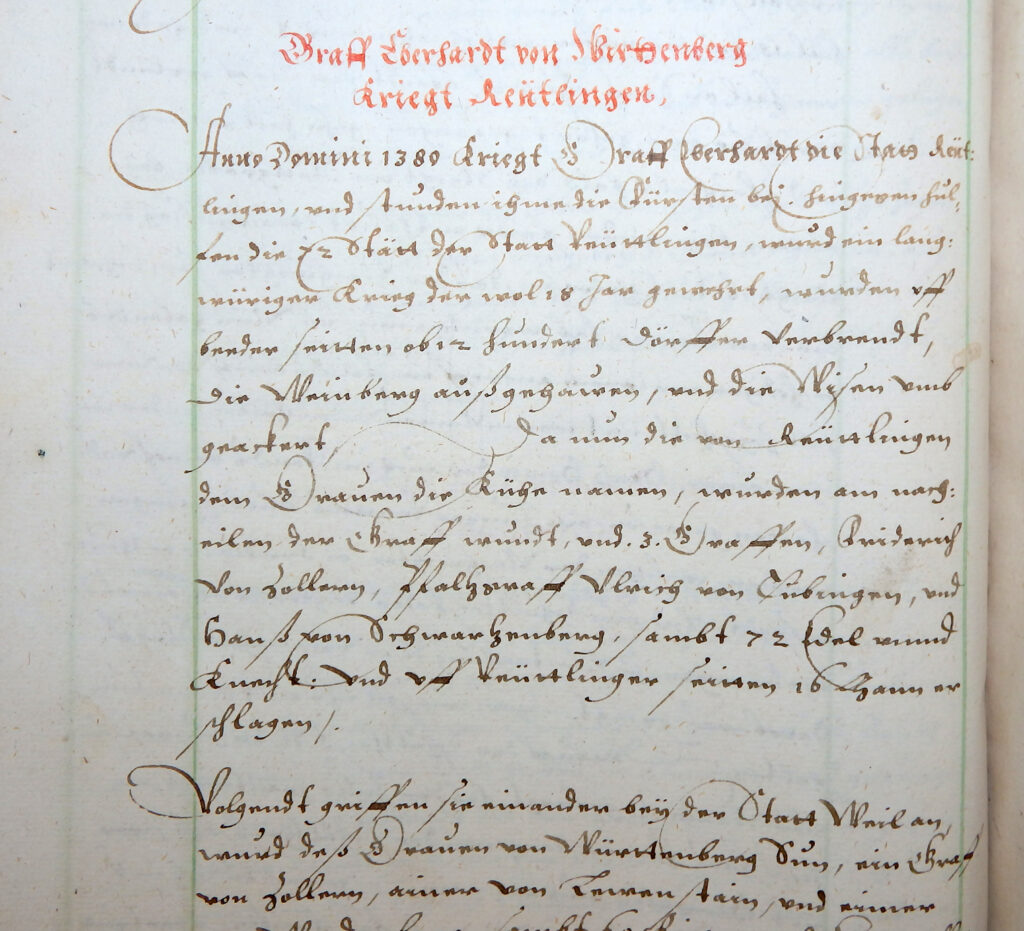 Graff Eberhardt von Wirtenberg
Kriegt Reütlingen,
Anno Domini 1380 Kriegt Graff Eberhardt die Statt Reüt:
lingen, und stunden ihme die Fürsten bej. hingegen hul,
fen die 72 Stätt der Statt Reüttlingen, wurd ein lang:
würiger Krieg der wol 18 Jar gewehrt, wurden uff
beeder seitten ob 12 hundert Dörffer verbrendt,
die Weinberg außgehawen, und die Wisen umb
geackert, Da nun die von Reüttlingen
dem Grauen die Kühe namen, wurden am nach:
eilen der Graff wundt, und .3. Graffen, Friderich
von Zollern, Pfaltzgraff Ulrich von Tübingen, und
Hanß von Schwartzenberg, sambt 72 Edel unnd
Knecht. Und uff Reüttlinger seitten 16 Mann er
schlagen /.
Volgendt griffen sie einander bey der Statt Weil an,
wurd deß Grauen von Württenberg Sun, ein Graff
von Zollern, ainer von Lewenstain, und einer